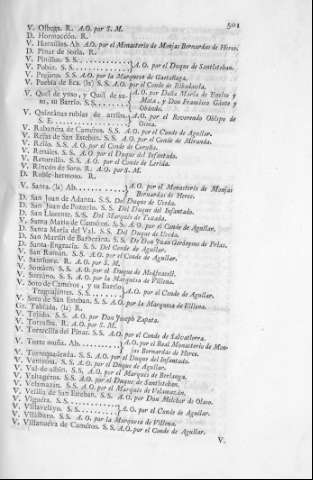 501
V. Osbega. R. A.O. por S. M.
D. Hormacción. R.
V. Huratillas. Ab. A.O. por el Monasterio de Monjas Bernardas de Herce.
D. Pinar de Soria. R.
V. Pinillos. S.S.
V. Pobár. S.S. A.O. por el Duque de Santistevan.
V. Pujáros. S.S. A.O. por la Marquesa de
V. Puebla de Eca. (la) S.S. A.O. por el Conde de
V. Quel de yuso, y Quel de su- A.O. por Doña María de Enciso y
so, su Barrio. S.S. Mata, y Don Francisco Gante y
Obando.
V. Quintanas rublas de arriba. A.O. por el Reverendo Obispo de
S. E. Osma.
V. Rabanéra de Caméros. S.S. A.O. por el Conde de Aguilar.
V. Rejas de San Esteban. S.S. A.O. por el Conde de Miranda.
V. Rello. S.S. A.O. por el Conde de Coruña.
V. S.S. A.O. por el Duque del Infantado.
V. Retortillo. S.S. A.O. por el Conde de
V. Rincón de Soto. R. A.O. por S. M.
D. Roble-hermoso. R.
V. Santa. (la) Ab. A.O. por el Monasterio de Monjas
Bernardas de Herce.
D. San Juan de Adanta. S.S. Del Duque de Uceda.
D. San Juan de S.S. Del Duque del Infantado.
D. San Llorente. S.S. Del Marqués de
V. Santa María de Caméros. S.S. A.O. por el Conde de Aguilar.
D. Santa María del Val. S.S. Del Duque de Uceda.
D. San Martín de Barbarána. S.S. De Don Juan
D. Santa-Engracia. S.S. Del Conde de Aguilar.
V. San Román. S.S. A.O. por el Conde de Aguilar.
V. R. A.O. por S. M.
V. Somáen. S.S. A.O. por el Duque de Medinaceli.
V. S.S. A.O. por la Marquesa de Villena.
V. Soto de Caméros, y su Barrio
Treguajántes. S.S. A.O. por el Conde de Aguilar.
V. Soto de San Esteban. S.S. A.O. por la Marquesa de Villena.
Tablada. (la) R.
V. Tejádo. S.S. A.O. por Don Joseph Zapata.
V. Torralba. R. A.O. por S. M.
V. Torrecilla del Pinar. S.S. A.O. por el Conde de Salvatierra.
V. Torre muña. Ab. A.O. por el Real Monasterio de Mon-
jas Bernardas de Herce.
V. S.S. A.O. por el Duque del Infantado.
V. Ventosa. S.S. A.O. por el Duque de Aguilar.
V. Val-de-albín. S.S. A.O. por el Marqués de Berlanga.
V. Valtagéros. S.S. A.O. por el Duque de Santistevan.
V. Velamazán. S.S. A.O. por el Marqués de Velamazán.
V. Velilla de San Esteban. S.S. A.O. por Don Melchor de
V. Viguéra. S.S.
V. Villavelayo. S.S. A.O. por el Conde de Aguilar.
V. S.S. A.O. por la Marquesa de Villena.
V. Villanueva de Caméros. S.S. A.O. por el Conde de Aguilar.
V.